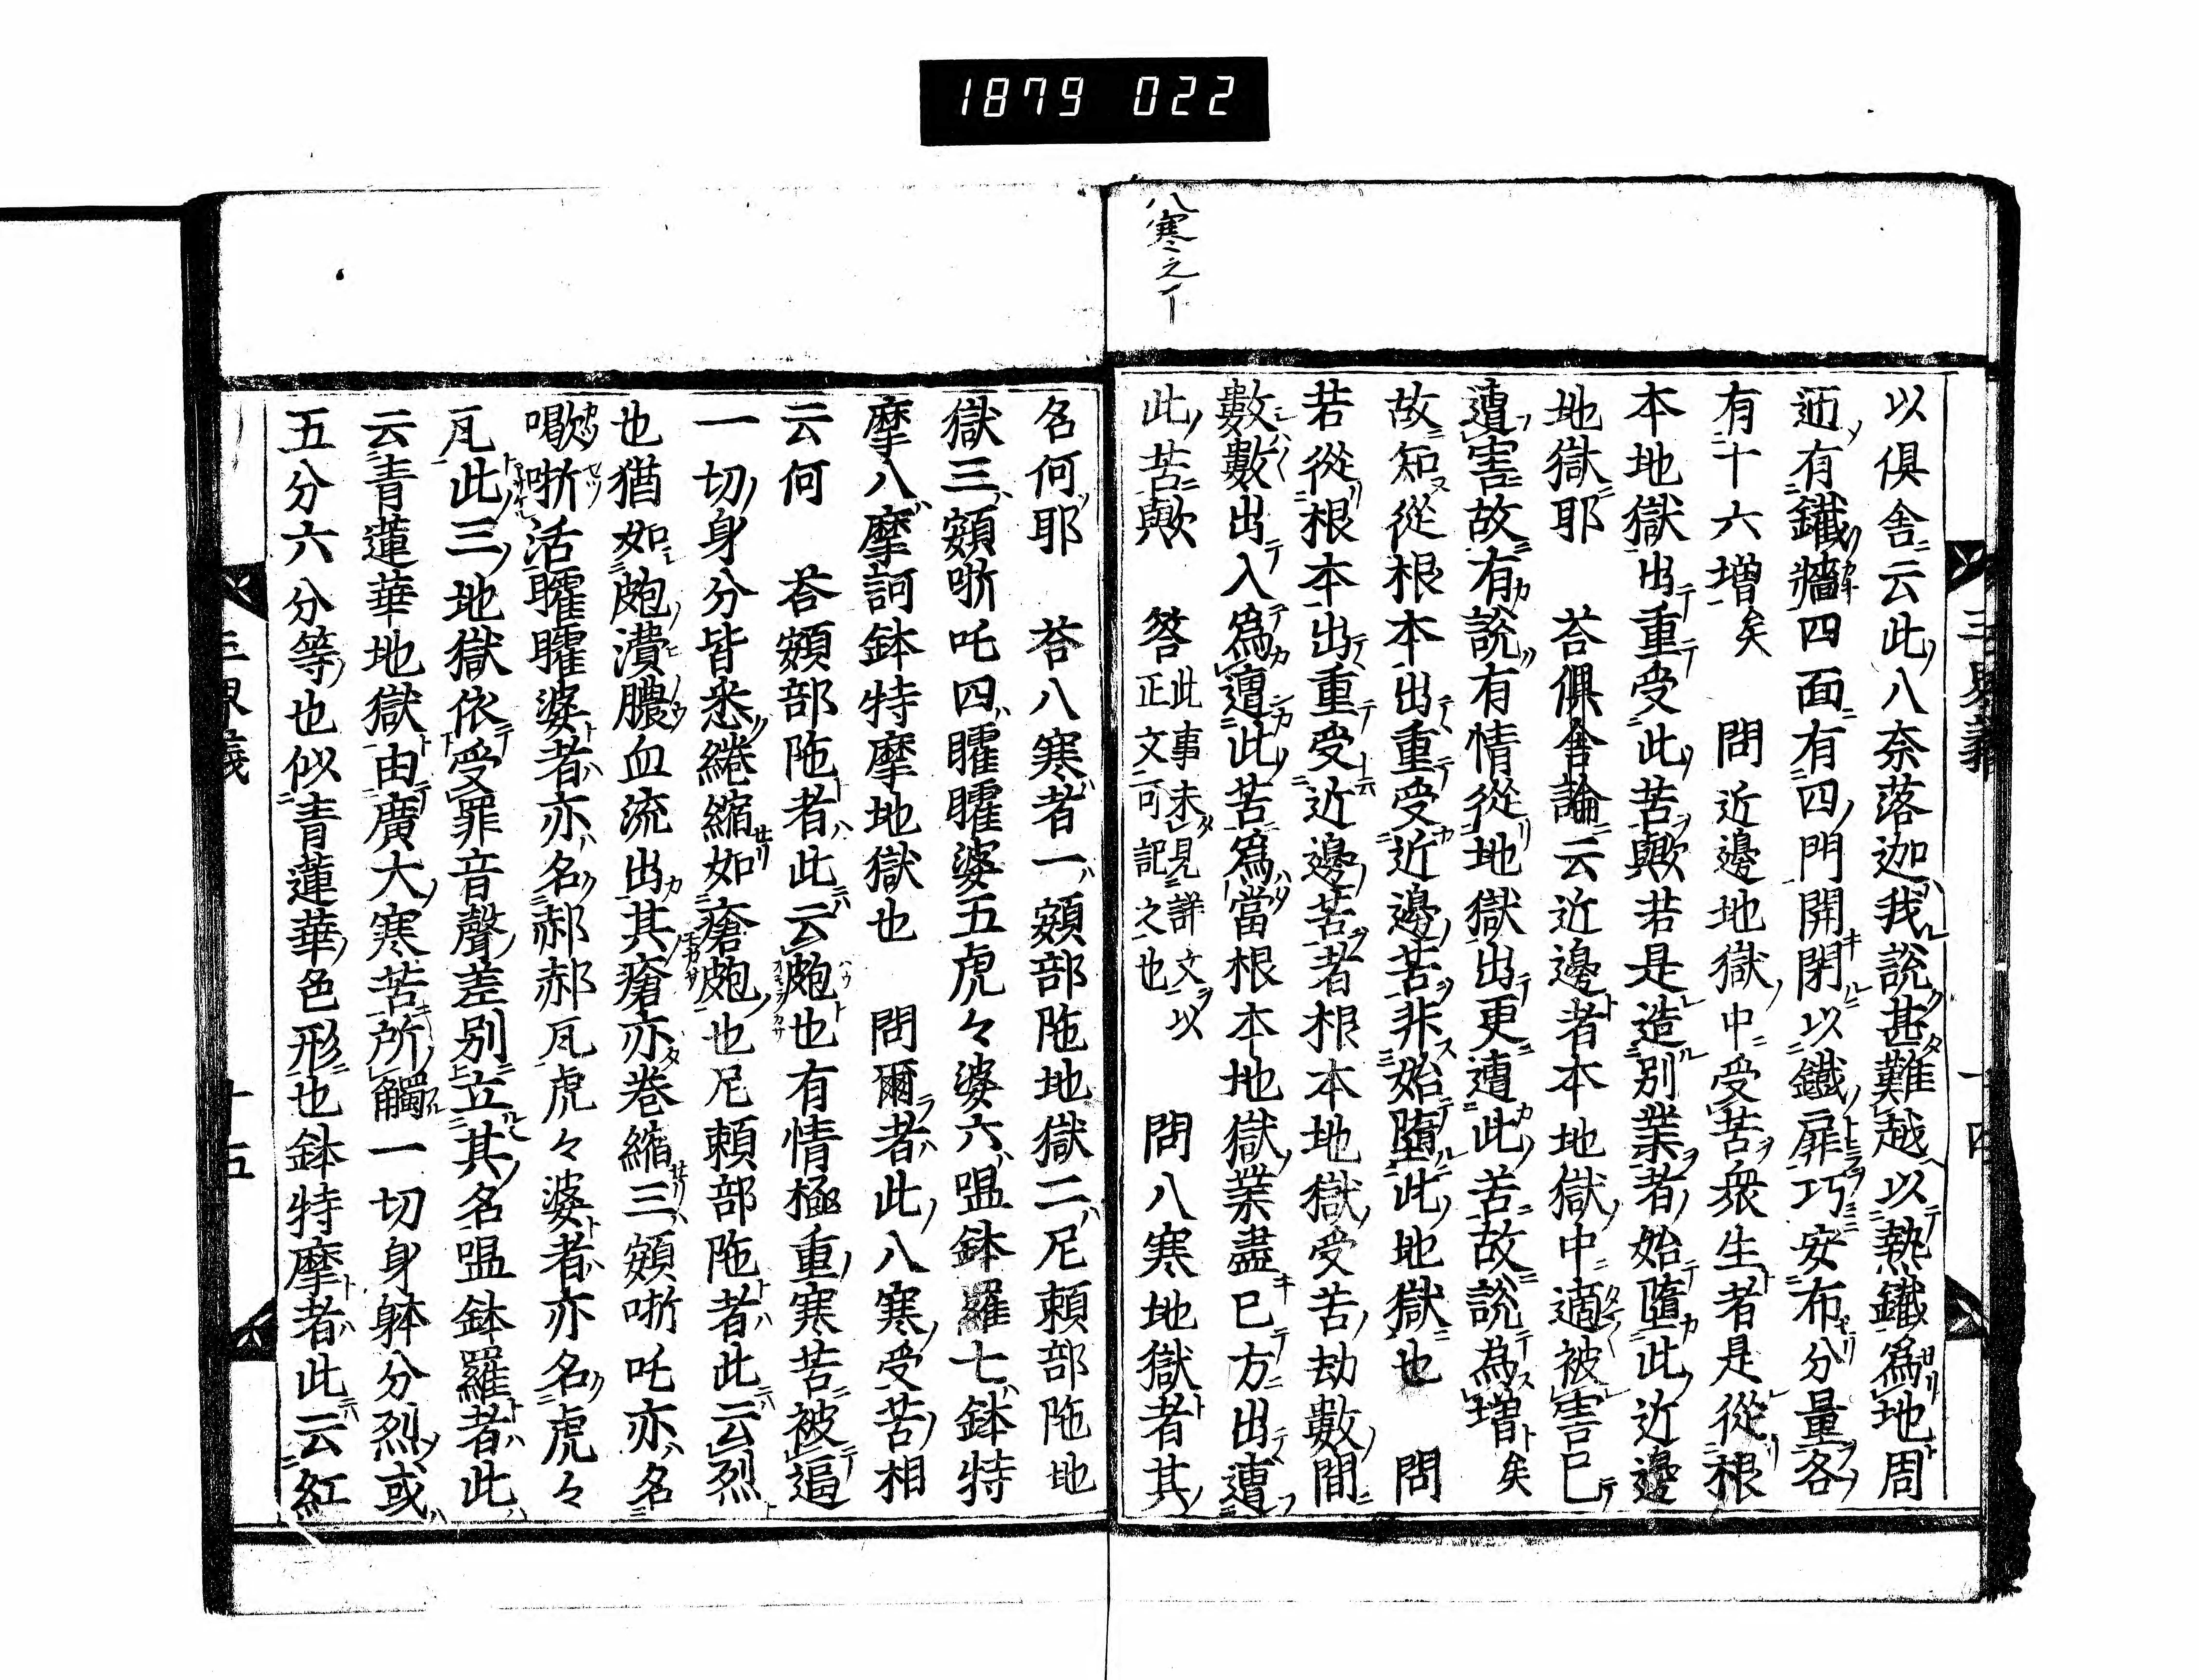 1879 022
八寒之下
以俱舍云此八奈落迦我說甚難越以熱鐵爲地周
迊有鐵牆四面有四門開閉以鐵扉巧安布分量各
有十六增矣　問近邊地獄中受苦衆生者是從根
本地獄出重受此苦歟若是造別業者始墮此近邊
地獄耶　荅俱舍論云近邊者本地獄中適被害已
遭害故有說有情從地獄出更遭此苦故說為增矣
故知從根本出重受近邊苦非始墮此地獄也　問
若從根本出重受近邊苦者根本地獄受苦劫數間
數數出入爲遭此苦爲當根本地獄業盡已方出遭
此苦歟　答此事未見詳文以正文可記之也　問八寒地獄者其
名何耶　荅八寒者一頞部陁地獄二尼賴部陁地
獄三頞哳吒四臛臛婆五虎々婆六嗢鉢羅七鉢特
摩八摩訶鉢特摩地獄也　問爾者此八寒受苦相
云何　荅頞部陁者此云皰也有情極重寒苦被逼
一切身分皆悉綣縮如瘡皰也尼賴部陁者此云烈
也猶如皰潰膿血流出其瘡亦卷縮三頞哳吒亦名
噷哳活臛臛婆者亦名郝郝凡虎々婆者亦名虎々
凡此三地獄依受罪音聲差別立其名嗢鉢羅者此
云青蓮華地獄由廣大寒苦所觸一切身躰分烈或
五分六分等也似青蓮華色形也鉢特摩者此云紅
三界義
十五